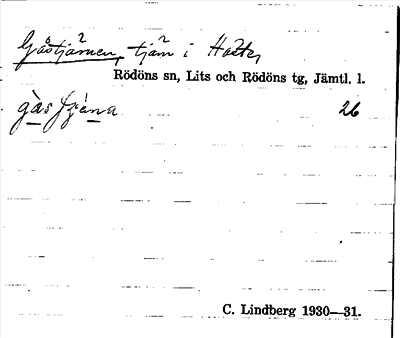 Gåstjärnen, tjärn i
Rödöns sn, Lits och Rödöns tg, Jämtl. l.
26
C. Lindberg 1930—31.